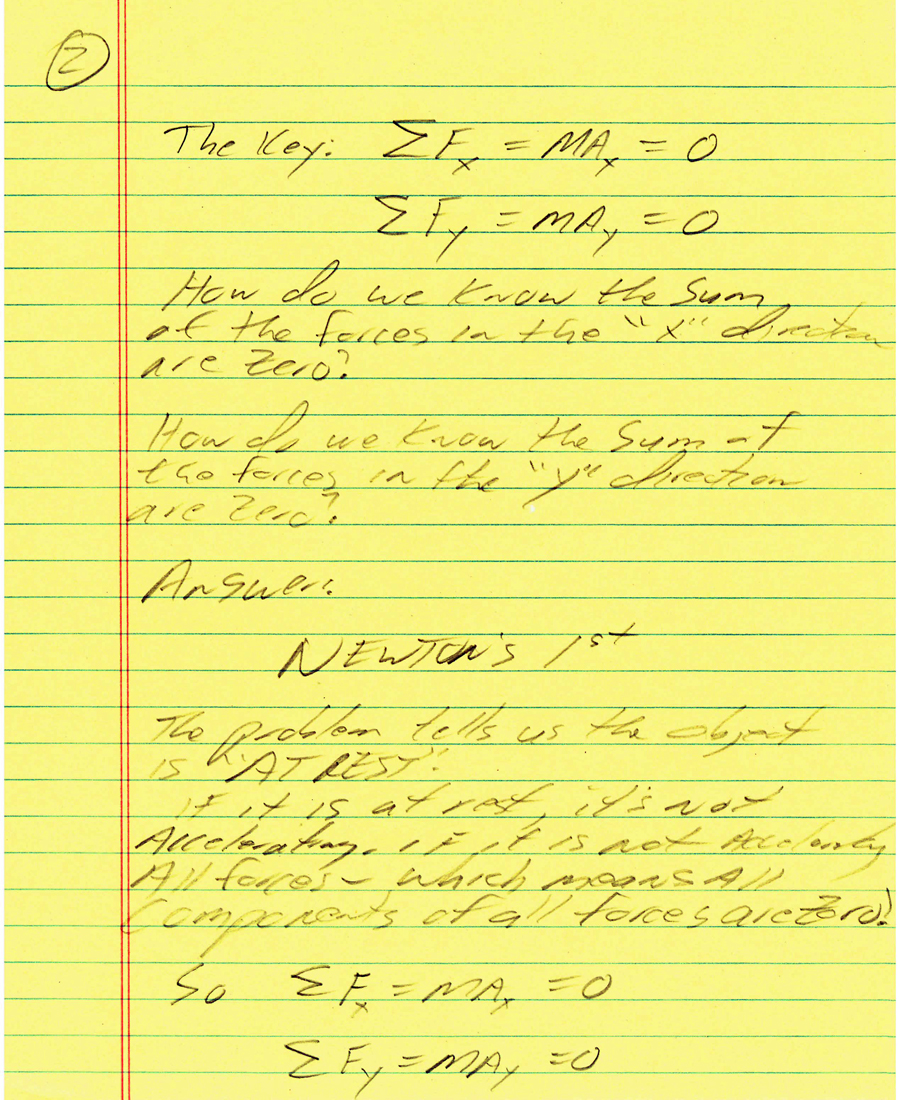 2
The Key: ΣFx = MAx = 0
ΣFy = MAy = 0
How do we know the Sum
of the forces in the "X" direction
are Zero?
How do we know the Sum of
the forces in the "Y" direction
are Zero?
Answer:
NEWTON'S 1st
The problem tells us the object
is "AT REST".
if it is at rest, it's not
Accelerating. if it is not Accelerating
All forces - which means All
Components of all forces are Zero!
So ΣFx = MAx = 0
ΣFy = MAy = 0